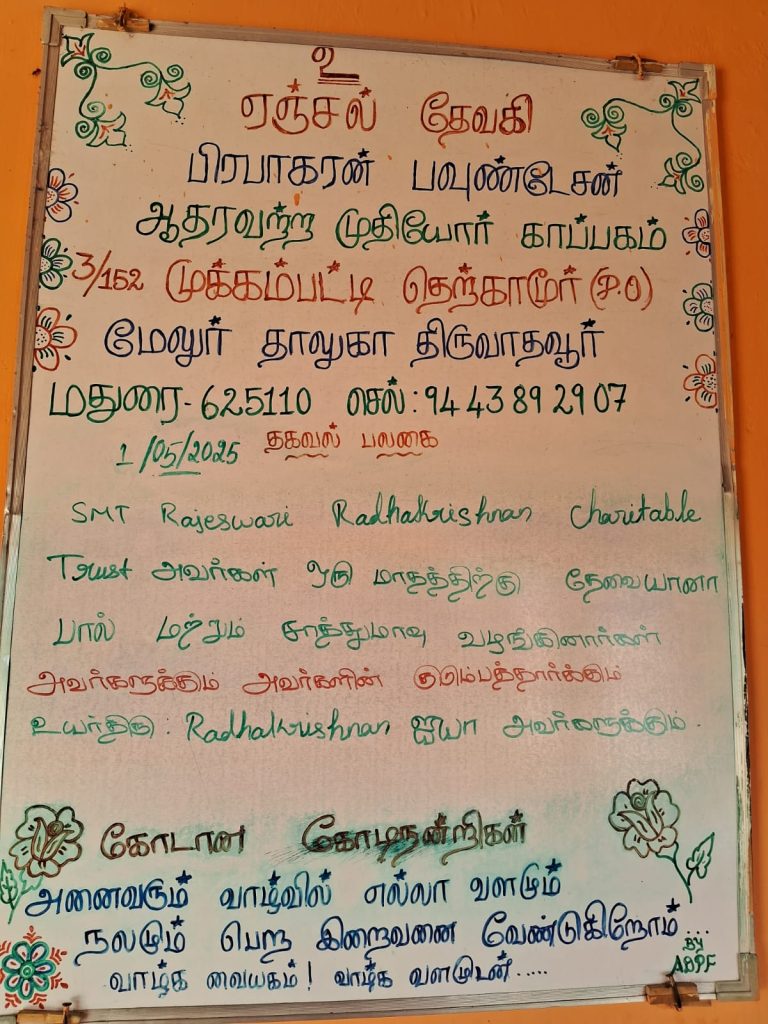 உ
ஏஞ்சல் தேவகி
பிரபாகரன் பவுண்டேசன்
ஆதரவற்ற முதியோர் காப்பகம்
3/152 முக்கம்பட்டி தெற்காமூர் (P.O)
மேலுர் தாலுகா திருவாதவூர்
மதுரை - 625110 செல் : 94 43 89 29 07
1/05/2025 தகவல் பலகை
SMT Rajeswari Radhakrishnan Charitable
Trust அவர்கள் ஒரு மாதத்திற்கு தேவையானா
பால் மற்றும் சாத்துமாவு வழங்கினார்கள்
அவர்களுக்கும் அவர்களின் குடும்பத்தார்க்கும்
உயர்திரு. Radhakrishnan ஐயா அவர்களுக்கும்.
கோடான கோடிநன்றிகள்
அனைவரும் வாழ்வில் எல்லா வளமும்
நலமும் பெற இறைவனை வேண்டுகிறோம்...
வாழ்க வையகம்! வாழ்க வளமுடன்.....
BY
ABPF